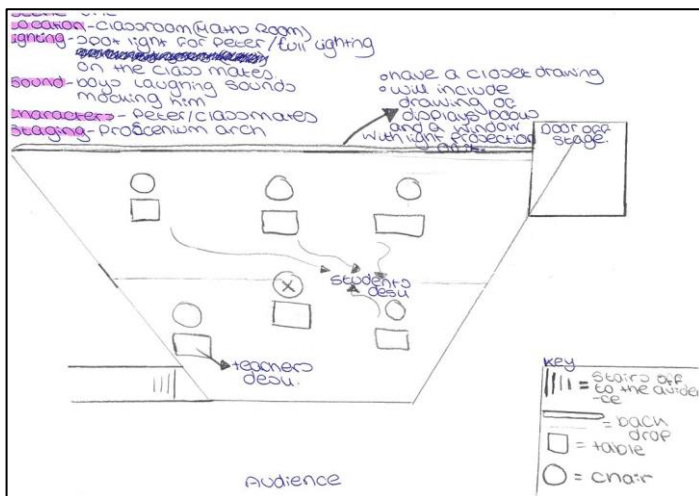 Location - classroom (Maths Room)
Lighting - spot light for Peter/full lighting
on the class mates.
Sound - boys laughing sounds
mocking him
Characters - Peter/classmates
Staging - Proscenium arch
• have a closet drawing
• will include
drawing of
displays
and a window
with light projection
door off
stage.
students
desk
teachers
desk.
key
= stairs off
to the audien
-ce
= back
drop
= table
= chair
Audience